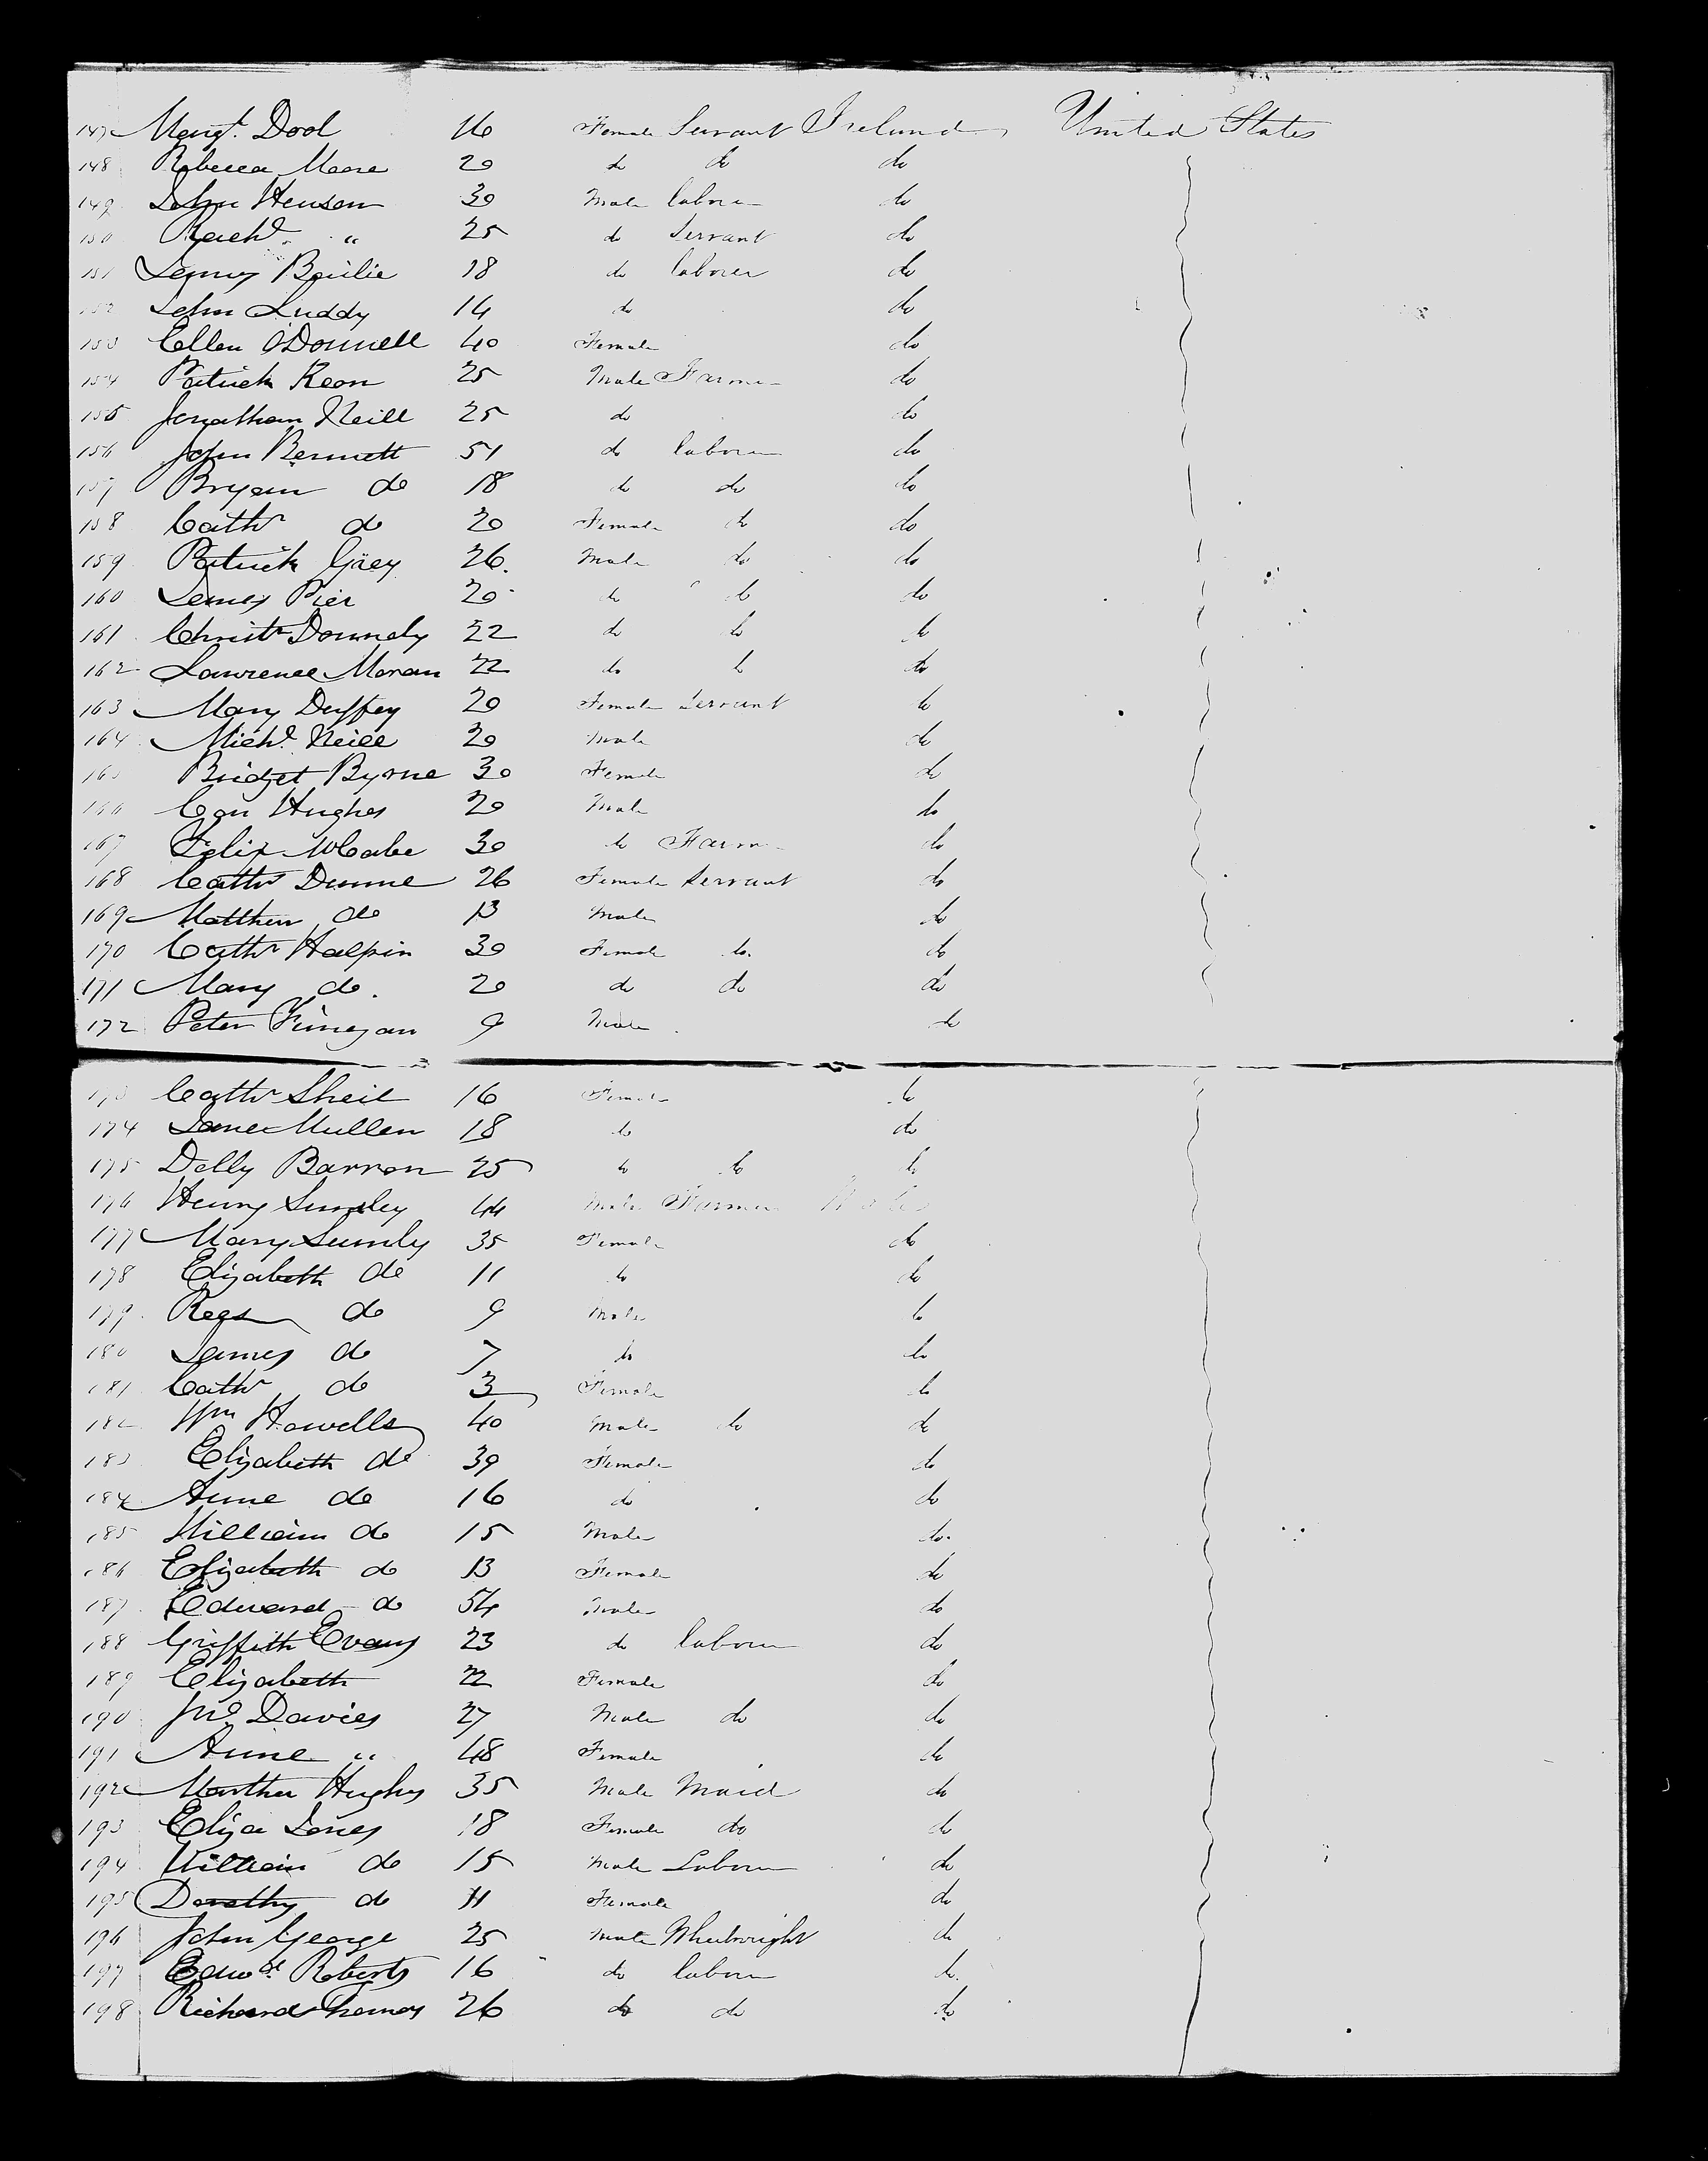 147 Margt. Dool 16 Female Servant Ireland United States
148 Rebecca Moore 20 do do do
149 John Henson 30 Male labourer do
150 Rachl. " 25 do Servant do
151 James Bailie 18 do laborer do
152 John Luddy 14 do do
153 Ellen O'Donnell 40 Female do
154 Patrick Keon 25 Male Farmer do
155 Jonathan Neill 25 do do
156 John Bennett 51 do laborer do
157 Bryan do 18 do do do
158 Cathr do 20 Female do do
159 Patrick Grey 26. Male do do
160 James Pier 20 do do do
161 Christr Donnely 22 do do do
162 Lawrence Moran 22 do do do
163 Mary Duffey 20 Female Servant do
164 Michl. Neill 20 Male do
165 Bridget Byrne 30 Female do
166 Con Hughes 20 Male do
167 Felix McCabe 30 do Farmer do
168 Cathr Dunne 26 Female Servant do
169 Matthew do 13 Male do
170 Cathr Halpin 30 Female do. do
171 Mary do. 20 do do do
172 Peter Finegan 9 Male do
173 Cathr Sheil 16 Female do
174 Jane Mullen 18 do do
175 Dolly Barron 25 do do do
176 Henry 44 Male Farmer Wales
177 Mary 35 Female do
178 Elizabeth do 11 do do
179 Rees do 9 Male do
180 James do 7 do do
181 Cathr do 3 Female do
182 Wm Howells 40 Male do do
183 Elizabeth do 39 Female do
184 Anne do 16 do do
185 William do 15 Male do.
186 Elizabeth do 13 Female do
187 Edward do 54 Male do
188 Griffith Evans 23 do laborer do
189 Elizabeth 22 Female do
190 Jno Davies 27 Male do do
191 Anne " 48 Female do
192 Martha Hughes 35 Male Maid do
193 Eliza Jones 18 Female do do
194 William do 15 Male Laborer do
195 Dorothy do 11 Female do
196 John George 25 Male Wheelwright do
197 Edwd. Roberts 16 do laborer do.
198 Richard Thomas 26 do do do